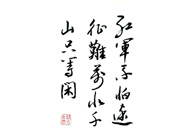 红軍不怕遠
征難萬水千
山只等閑